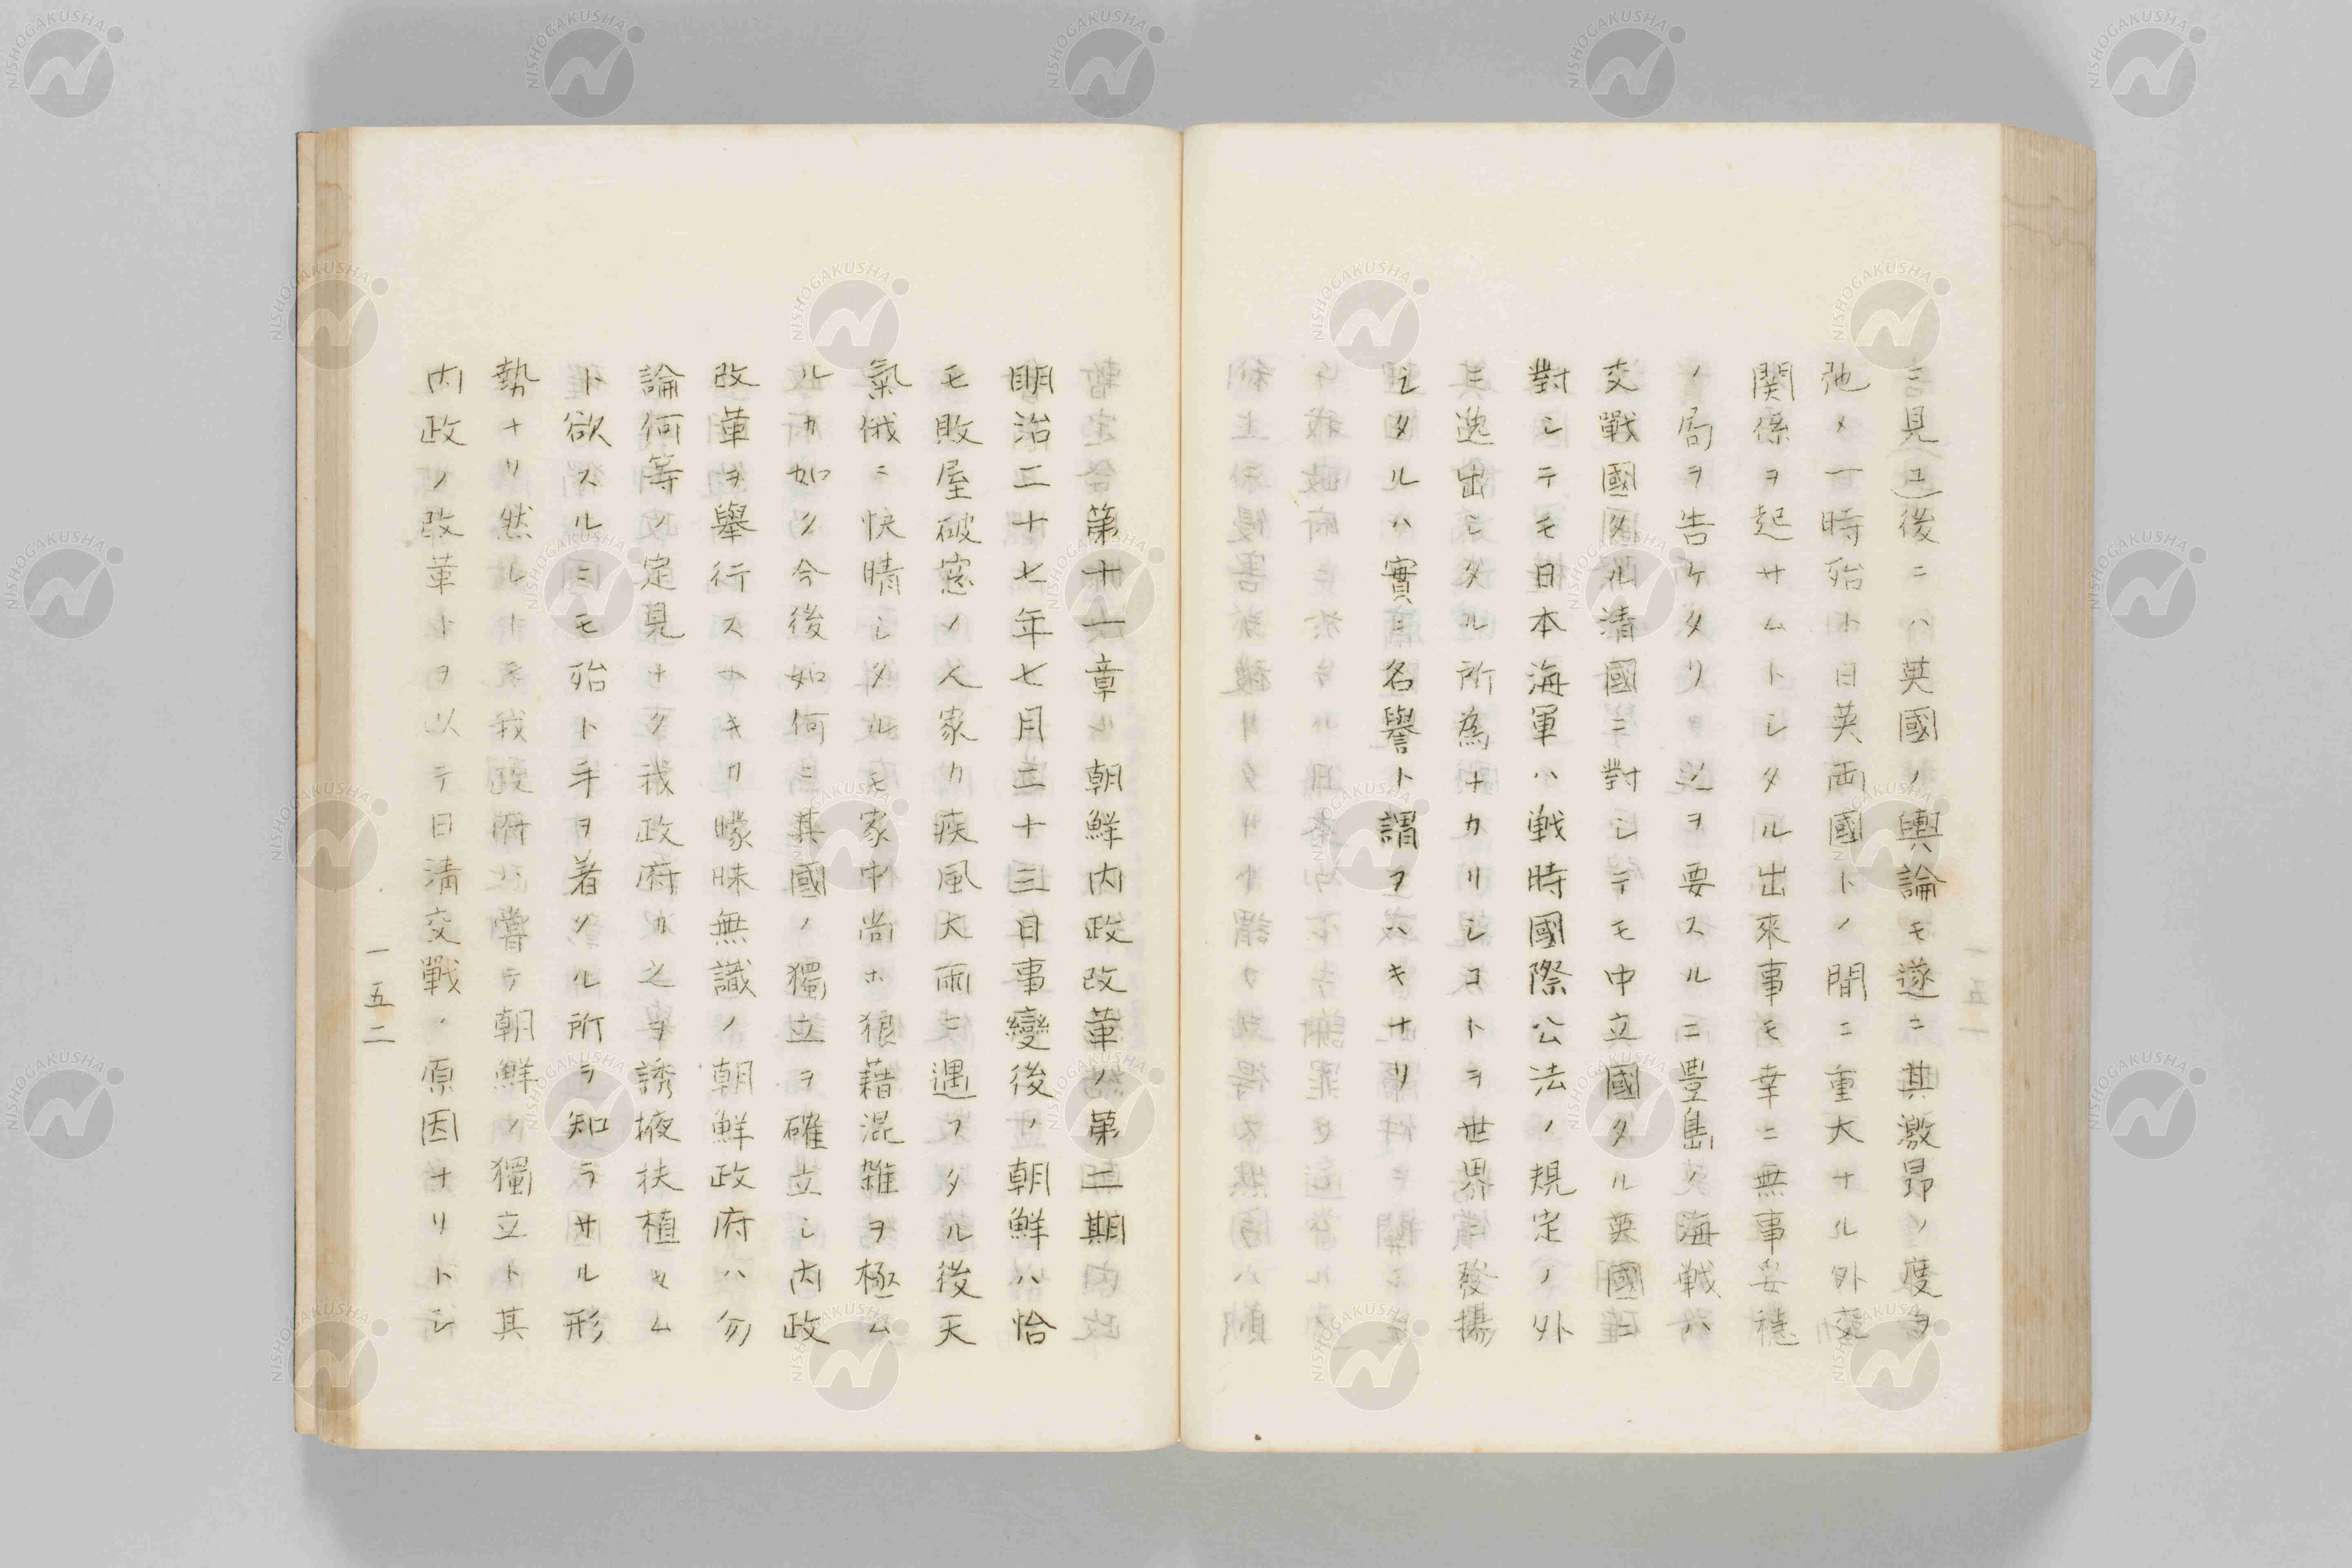 ニ見ユ後ニハ英國ノ輿論モ遂ニ其激昂ノ度ヲ
弛メ一時殆ト日英両國トノ間ニ重大ナル外交
関係ヲ起サムトシタル出來事モ幸ニ無事妥穏
ノ局ヲ告ケタリ之ヲ要スルニ豊島ノ海戦ハ
交戰國タル清國ニ對シテモ中立國タル英國ニ
對シテモ日本海軍ハ戦時國際公法ノ規定ノ外
ニ逸出シタル所為ナカリシコトヲ世界ニ發揚
シタルハ實ニ名譽ト謂フヘキナリ
第十一章 朝鮮内政改革ノ第二期
明治二十七年七月二十三日事變後ノ朝鮮ハ恰
モ敗屋破窓ノ人家カ疾風大雨ニ遇フタル後天
氣俄ニ快晴シタルモ家中尚ホ狼藉混雑ヲ極ム
ルカ如ク今後如何ニ其國ノ獨立ヲ確立シ内政
改革ヲ舉行スヘキカ曚昧無識ノ朝鮮政府ハ勿
論何等ノ定見ナク我政府カ之ヲ誘掖扶植セム
ト欲スルニモ殆ト手ヲ著クル所ヲ知ラサル形
勢ナリ然レトモ我政府ハ嘗テ朝鮮ノ獨立ト其
内政ノ改革トヲ以テ日清交戰ノ原因ナリトシ
一五二